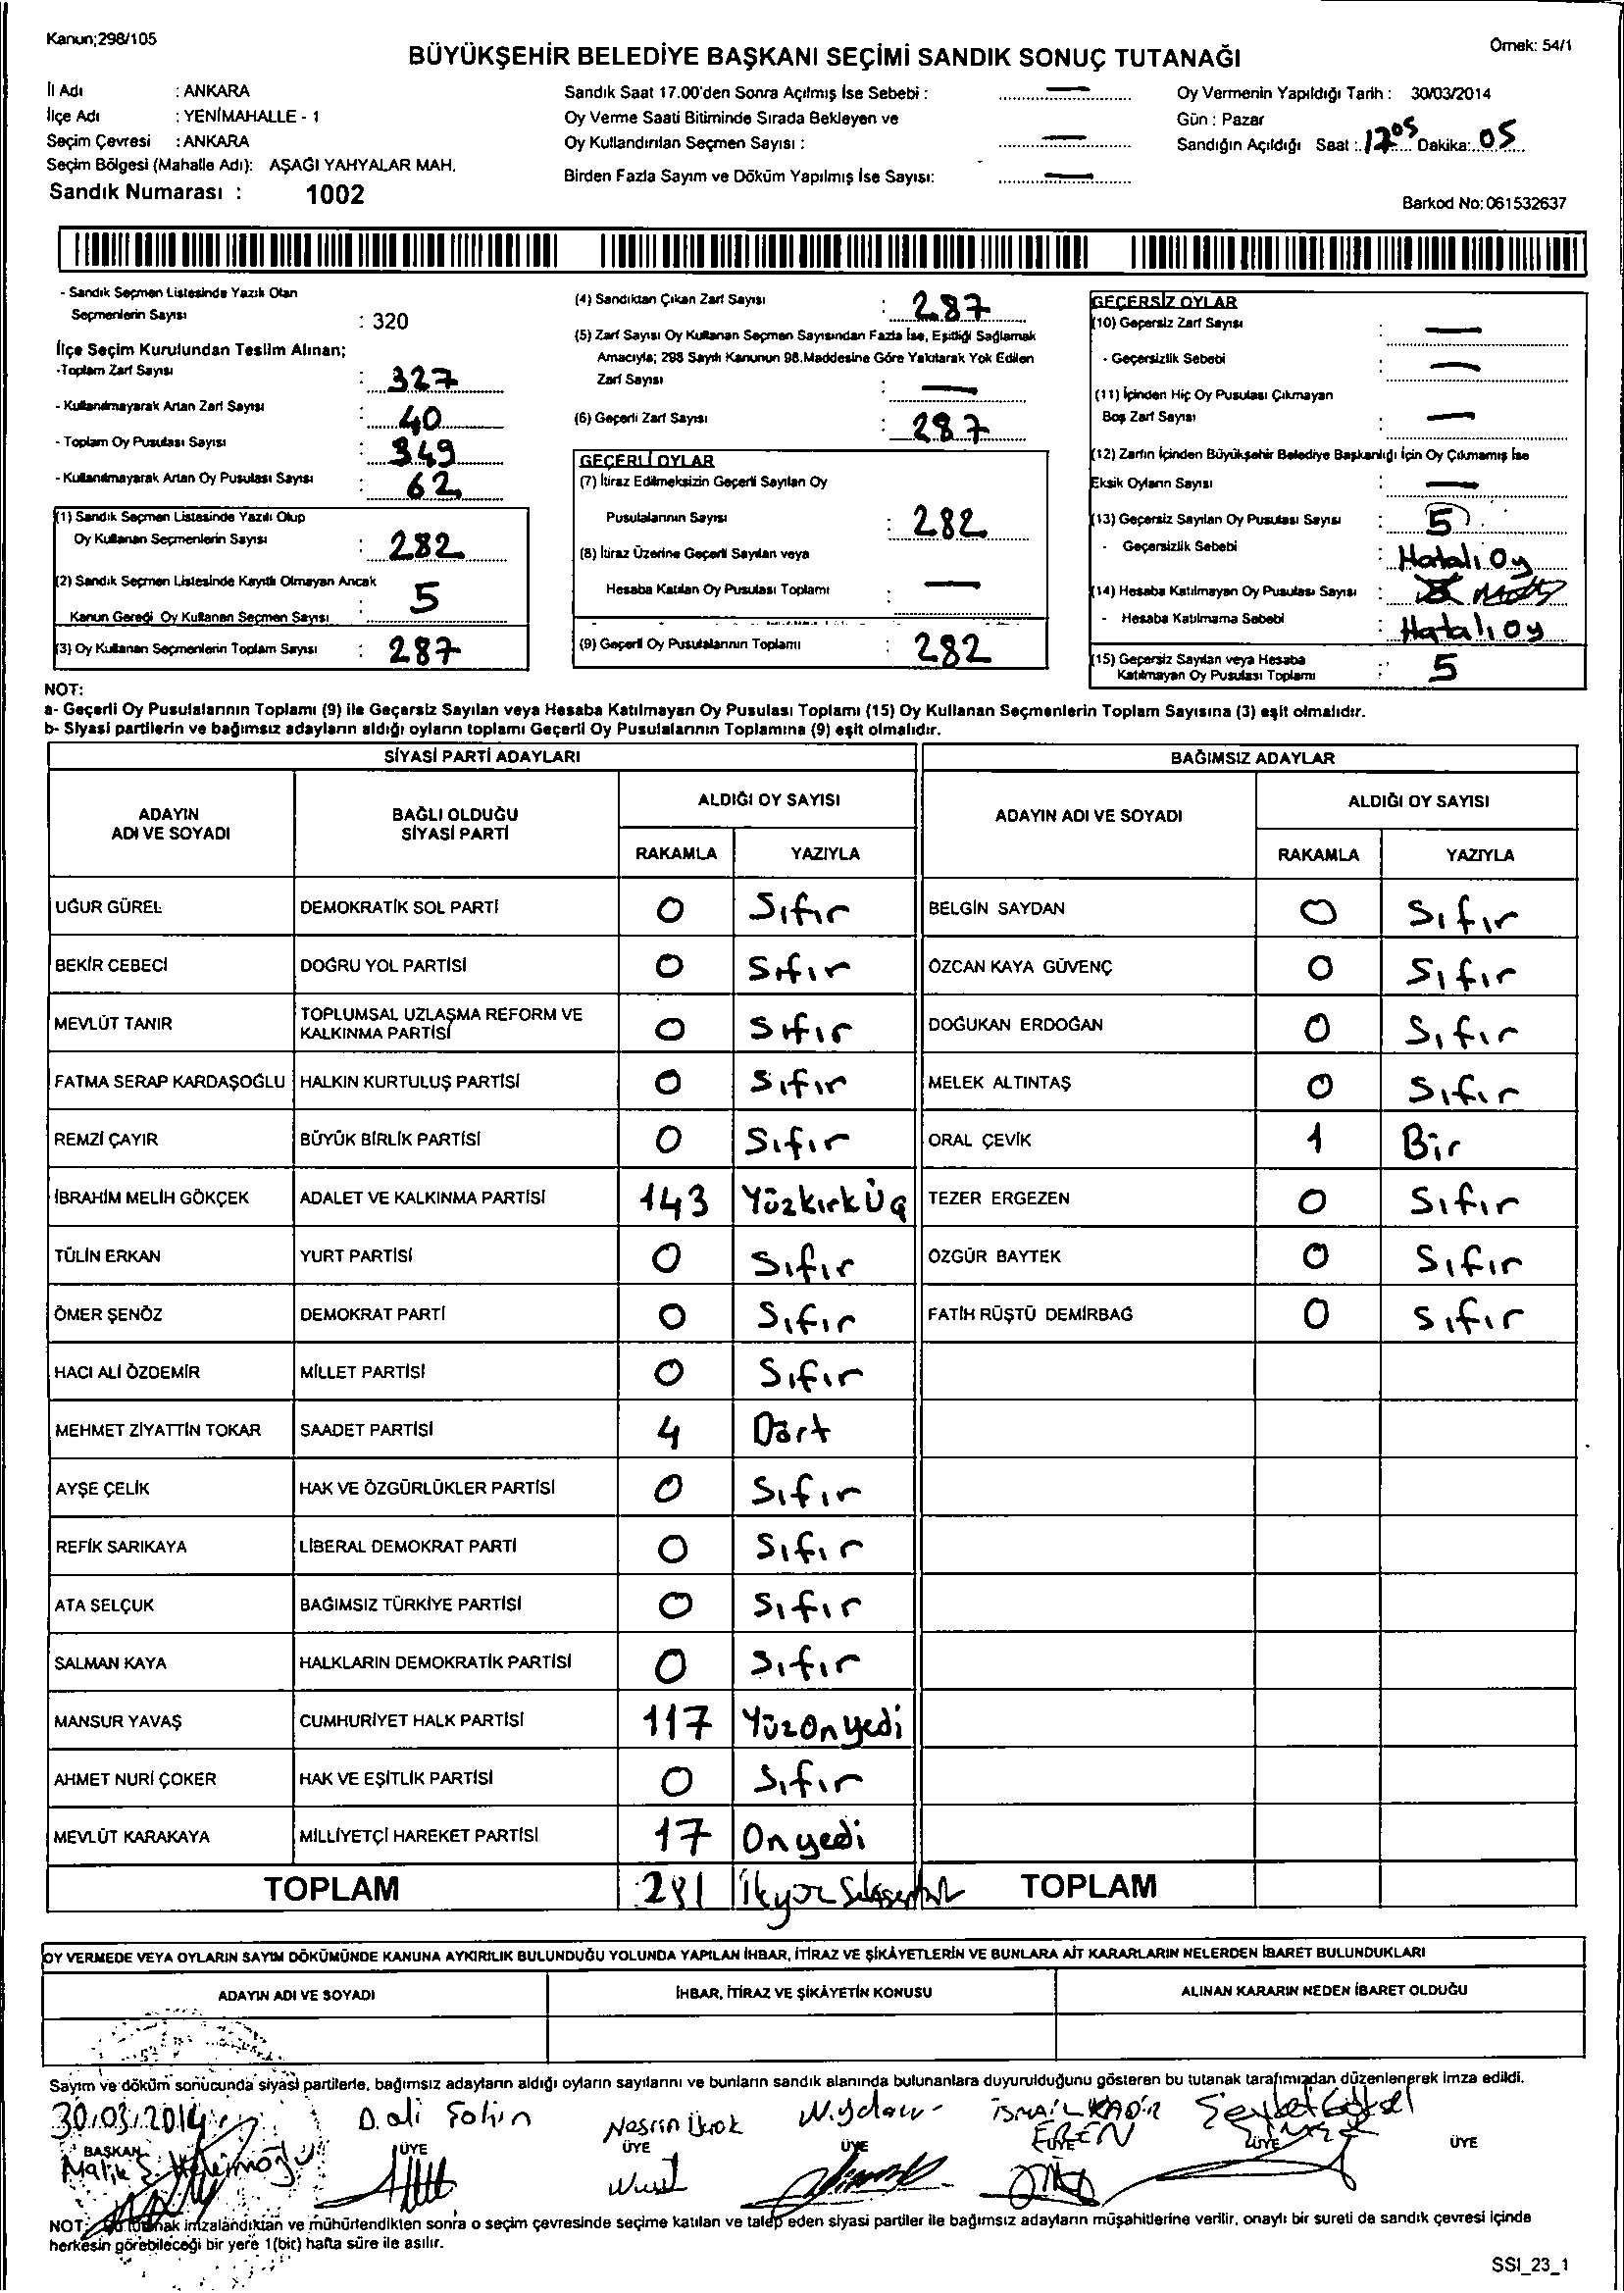 Kanun;298/105
Örnek: 54/1
BÜYÜKŞEHİR BELEDİYE BAŞKANI SEÇİMİ SANDIK SONUÇ TUTANAĞI
İl Adı : ANKARA
İlçe Adı : YENİMAHALLE - 1
Seçim Çevresi : ANKARA
Seçim Bölgesi (Mahalle Adı): AŞAĞI YAHYALAR MAH.
Sandık Numarası : 1002
Sandık Saat 17.00'den Sonra Açılmış İse Sebebi : —
Oy Verme Saati Bitiminde Sırada Bekleyen ve
Oy Kullandırılan Seçmen Sayısı : —
Birden Fazla Sayım ve Döküm Yapılmış İse Sayısı: —
Oy Vermenin Yapıldığı Tarih : 30/03/2014
Gün : Pazar
Sandığın Açıldığı Saat : 17 05 Dakika: 05
Barkod No: 061532637
- Sandık Seçmen Listesinde Yazılı Olan
Seçmenlerin Sayısı : 320
İlçe Seçim Kurulundan Teslim Alınan;
-Toplam Zarf Sayısı : 327
- Kullanılmayarak Artan Zarf Sayısı : 40
- Toplam Oy Pusulası Sayısı : 349
- Kullanılmayarak Artan Oy Pusulası Sayısı : 62
(1) Sandık Seçmen Listesinde Yazılı Olup
Oy Kullanan Seçmenlerin Sayısı : 282
(2) Sandık Seçmen Listesinde Kayıtlı Olmayan Ancak
Kanun Gereği Oy Kullanan Seçmen Sayısı : 5
(3) Oy Kullanan Seçmenlerin Toplam Sayısı : 287
(4) Sandıktan Çıkan Zarf Sayısı : 287
(5) Zarf Sayısı Oy Kullanan Seçmen Sayısından Fazla İse, Eşitliği Sağlamak
Amacıyla; 298 Sayılı Kanunun 98.Maddesine Göre Yakılarak Yok Edilen
Zarf Sayısı : —
(6) Geçerli Zarf Sayısı : 287
GEÇERLİ OYLAR
(7) İtiraz Edilmeksizin Geçerli Sayılan Oy
Pusulalarının Sayısı : 282
(8) İtiraz Üzerine Geçerli Sayılan veya
Hesaba Katılan Oy Pusulası Toplamı : —
(9) Geçerli Oy Pusulalarının Toplamı : 282
GEÇERSİZ OYLAR
(10) Geçersiz Zarf Sayısı : —
- Geçersizlik Sebebi : —
(11) İçinden Hiç Oy Pusulası Çıkmayan
Boş Zarf Sayısı : —
(12) Zarfın İçinden Büyükşehir Belediye Başkanlığı İçin Oy Çıkmamış İse
Eksik Oyların Sayısı : —
(13) Geçersiz Sayılan Oy Pusulası Sayısı : 5
- Geçersizlik Sebebi : Hatalı Oy
(14) Hesaba Katılmayan Oy Pusulası Sayısı :
- Hesaba Katılmama Sebebi : Hatalı oy
(15) Geçersiz Sayılan veya Hesaba
Katılmayan Oy Pusulası Toplamı : 5
NOT:
a- Geçerli Oy Pusulalarının Toplamı (9) ile Geçersiz Sayılan veya Hesaba Katılmayan Oy Pusulası Toplamı (15) Oy Kullanan Seçmenlerin Toplam Sayısına (3) eşit olmalıdır.
b- Siyasi partilerin ve bağımsız adayların aldığı oyların toplamı Geçerli Oy Pusulalarının Toplamına (9) eşit olmalıdır.
SİYASİ PARTİ ADAYLARI BAĞIMSIZ ADAYLAR
ADAYIN ADI VE SOYADI BAĞLI OLDUĞU SİYASİ PARTİ ALDIĞI OY SAYISI ADAYIN ADI VE SOYADI ALDIĞI OY SAYISI
RAKAMLA YAZIYLA RAKAMLA YAZIYLA
UĞUR GÜREL DEMOKRATİK SOL PARTİ 0 Sıfır BELGİN SAYDAN 0 Sıfır
BEKİR CEBECİ DOĞRU YOL PARTİSİ 0 Sıfır ÖZCAN KAYA GÜVENÇ 0 Sıfır
MEVLÜT TANIR TOPLUMSAL UZLAŞMA REFORM VE KALKINMA PARTİSİ 0 Sıfır DOĞUKAN ERDOĞAN 0 Sıfır
FATMA SERAP KARDAŞOĞLU HALKIN KURTULUŞ PARTİSİ 0 Sıfır MELEK ALTINTAŞ 0 Sıfır
REMZİ ÇAYIR BÜYÜK BİRLİK PARTİSİ 0 Sıfır ORAL ÇEVİK 1 Bir
İBRAHİM MELİH GÖKÇEK ADALET VE KALKINMA PARTİSİ 143 Yüzkırk Üç TEZER ERGEZEN 0 Sıfır
TÜLİN ERKAN YURT PARTİSİ 0 Sıfır ÖZGÜR BAYTEK 0 Sıfır
ÖMER ŞENÖZ DEMOKRAT PARTİ 0 Sıfır FATİH RÜŞTÜ DEMİRBAĞ 0 Sıfır
HACI ALİ ÖZDEMİR MİLLET PARTİSİ 0 Sıfır
MEHMET ZİYATTİN TOKAR SAADET PARTİSİ 4 Dört
AYŞE ÇELİK HAK VE ÖZGÜRLÜKLER PARTİSİ 0 Sıfır
REFİK SARIKAYA LİBERAL DEMOKRAT PARTİ 0 Sıfır
ATA SELÇUK BAĞIMSIZ TÜRKİYE PARTİSİ 0 Sıfır
SALMAN KAYA HALKLARIN DEMOKRATİK PARTİSİ 0 Sıfır
MANSUR YAVAŞ CUMHURİYET HALK PARTİSİ 117 Yüzonyedi
AHMET NURİ ÇOKER HAK VE EŞİTLİK PARTİSİ 0 Sıfır
MEVLÜT KARAKAYA MİLLİYETÇİ HAREKET PARTİSİ 17 Onyedi
TOPLAM 281 TOPLAM
OY VERMEDE VEYA OYLARIN SAYIM DÖKÜMÜNDE KANUNA AYKIRILIK BULUNDUĞU YOLUNDA YAPILAN İHBAR, İTİRAZ VE ŞİKÂYETLERİN VE BUNLARA AİT KARARLARIN NELERDEN İBARET BULUNDUKLARI
ADAYIN ADI VE SOYADI İHBAR, İTİRAZ VE ŞİKÂYETİN KONUSU ALINAN KARARIN NEDEN İBARET OLDUĞU
Sayım ve döküm sonucunda siyasi partilerle, bağımsız adayların aldığı oyların sayılarını ve bunların sandık alanında bulunanlara duyurulduğunu gösteren bu tutanak tarafımızdan düzenlenerek imza edildi.
30.03.2014 D.ali Şahin Nesrin İSMAİL KADİR EREN
BAŞKAN ÜYE ÜYE ÜYE ÜYE ÜYE ÜYE
Malik
NOT: Bu tutanak imzalandıktan ve mühürlendikten sonra o seçim çevresinde seçime katılan ve talep eden siyasi partiler ile bağımsız adayların müşahitlerine verilir, onaylı bir sureti de sandık çevresi içinde
herkesin görebileceği bir yere 1(bir) hafta süre ile asılır.
SSI_23_1